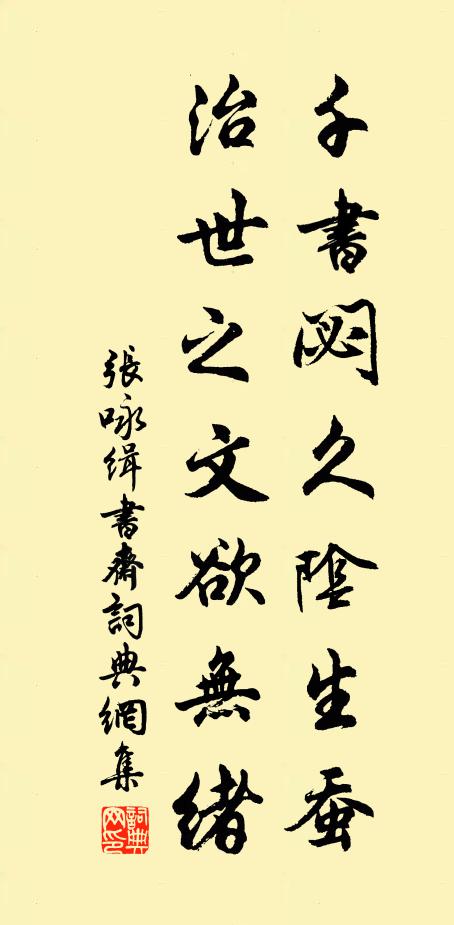 千書閟久陰生蚕
治世之文欲無緒
張咏緝書齋詞典網集
詞典網印